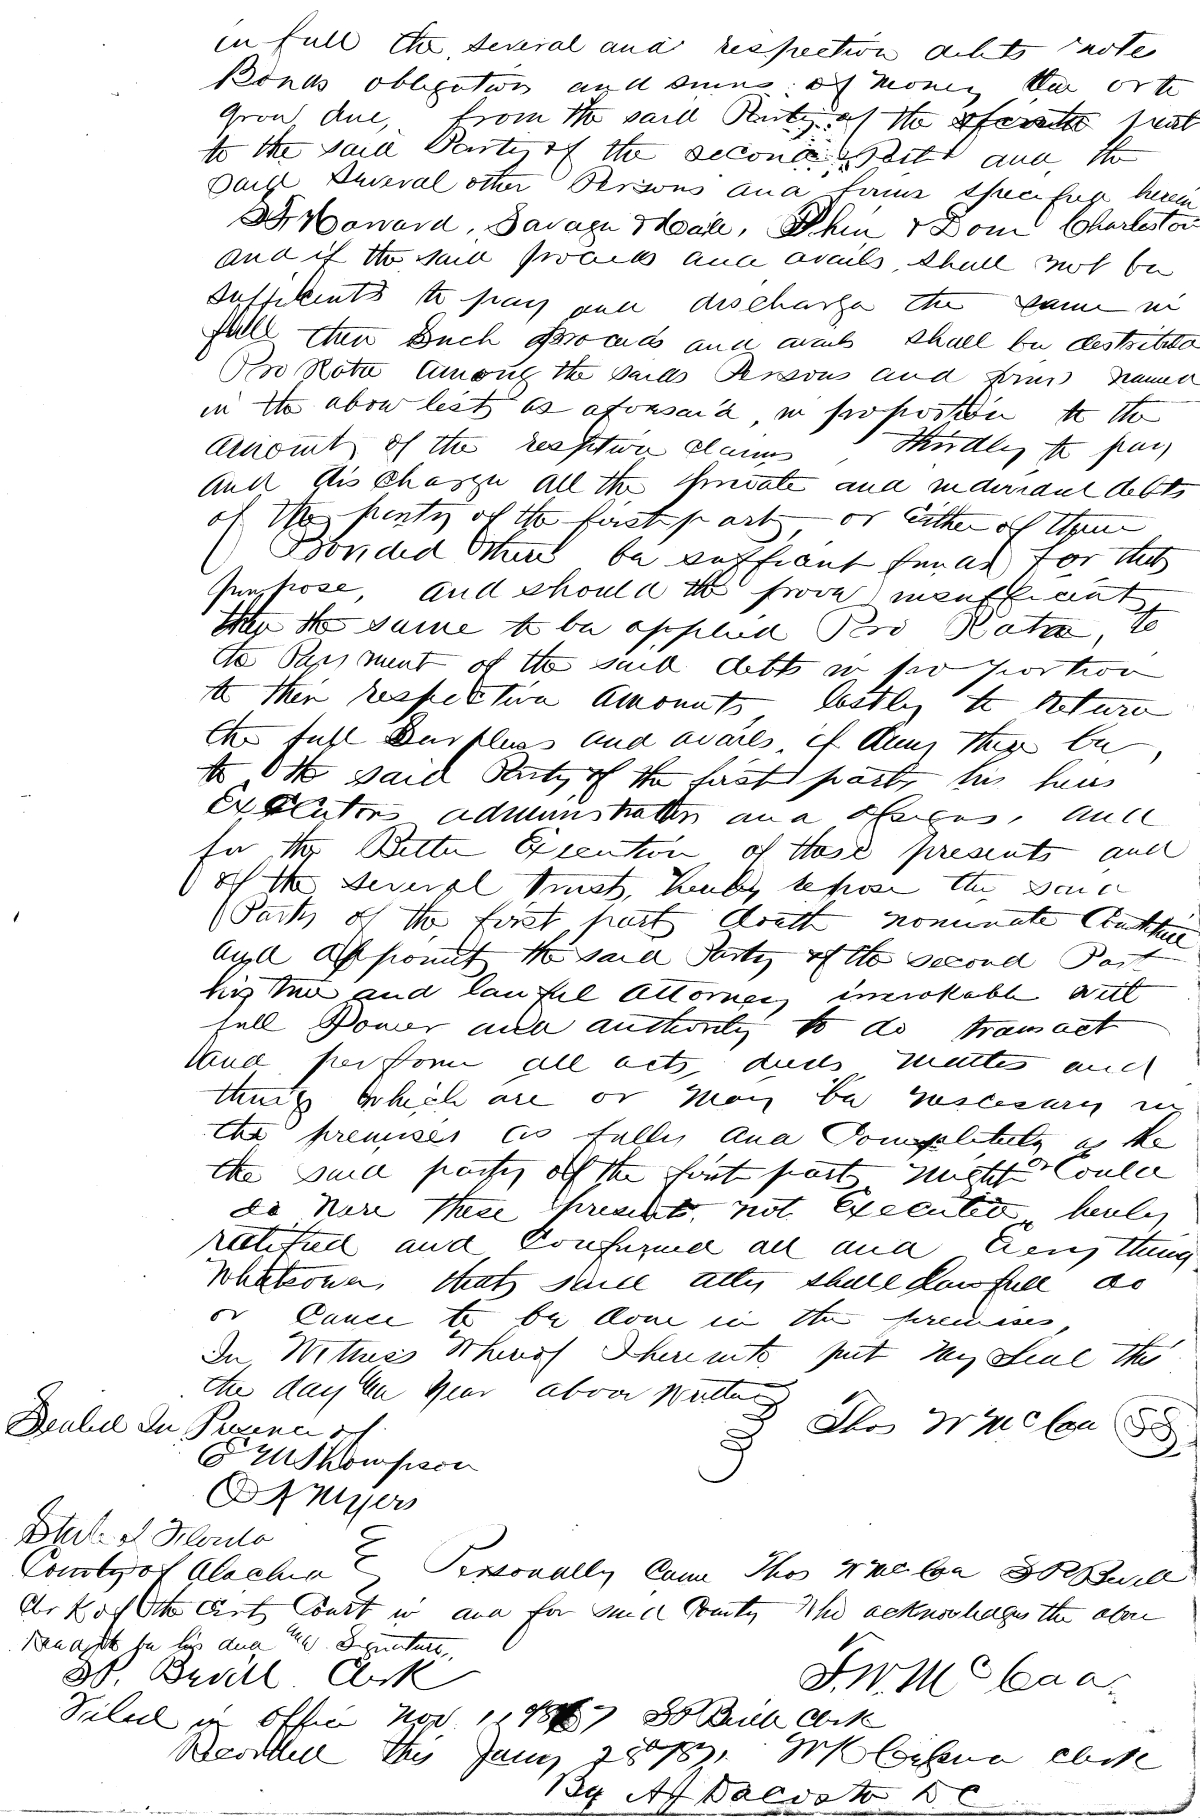 in full the several and respective debts note
Bonds obligation and sums of money due or to
grow due, from the said Party of the part
to the said Party of the second Part and the
said Several other Persons and firms specified herein
Howard, Savage & Haile, Charleston
and if the said proceeds and avails shall not be
sufficients to pay and discharge the same in
full then Such proceeds and avails shall be destributed
Pro Rata among the saids Persons and firms named
in the above lists as aforesaid, in proportion to the
amount of the respective claims, Thirdley to pay
and discharge all the private and individual debts
of the party of the first part, or either of them
Provided there be sufficient funds for that
purpose, and should the prove insufficient
then the same to be applied Pro Rata, to
the Payment of the said debts in proportion
to their respective amounts, lastly to return
the full Surpluss and avails, if Any there be,
to the said Party of the first part, his heirs
Executors administrators and assigns, and
for the Better Execution of these presents and
of the several trusts, hereby repose the said
Party of the first part doath nominate Constitute
and appoint the said Party of the second Part
his true and lawful Attorney irrevokable with
full Power and authority to do transact
and perform all acts, deeds, matters and
things which are or may be nescessary in
the premises as fully and Completely as he
the said party of the first part might or Could
do were these presents not Executed, hereby
ratified and Confirmed all and Every thing
Whatsoever that said atty shall lawfull do
or cause to be done in the premises,
In Witness Whereof I hereunto put my Seal this
the day and year above written
Sealed In Presence of Thos W McCaa
E M Thompson
O A Myers
State of Florida
County of Alachua Personally Came Thos W McCaa S P Bevill
Clerk of the Court in and for said County Who acknowledges the above
to be his deed and Signature,
S P. Bevill Clerk T. W. McCaa.
Filed in office Nov. 1867 S P Bevill Clerk
Recorded this Jany 28 1871. W K Clerk
By A J Dacosta D C